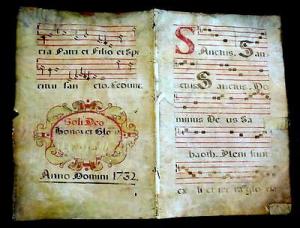 ria Patri et Filio et Spi
ritui san cto.
Soli Deo
Honor et Glo
Anno Domini 1732.
Sanctus. San
ctus Sanctus. Do
minus De us Sa
baoth. Pleni sunt
cæ li et ter ra glo